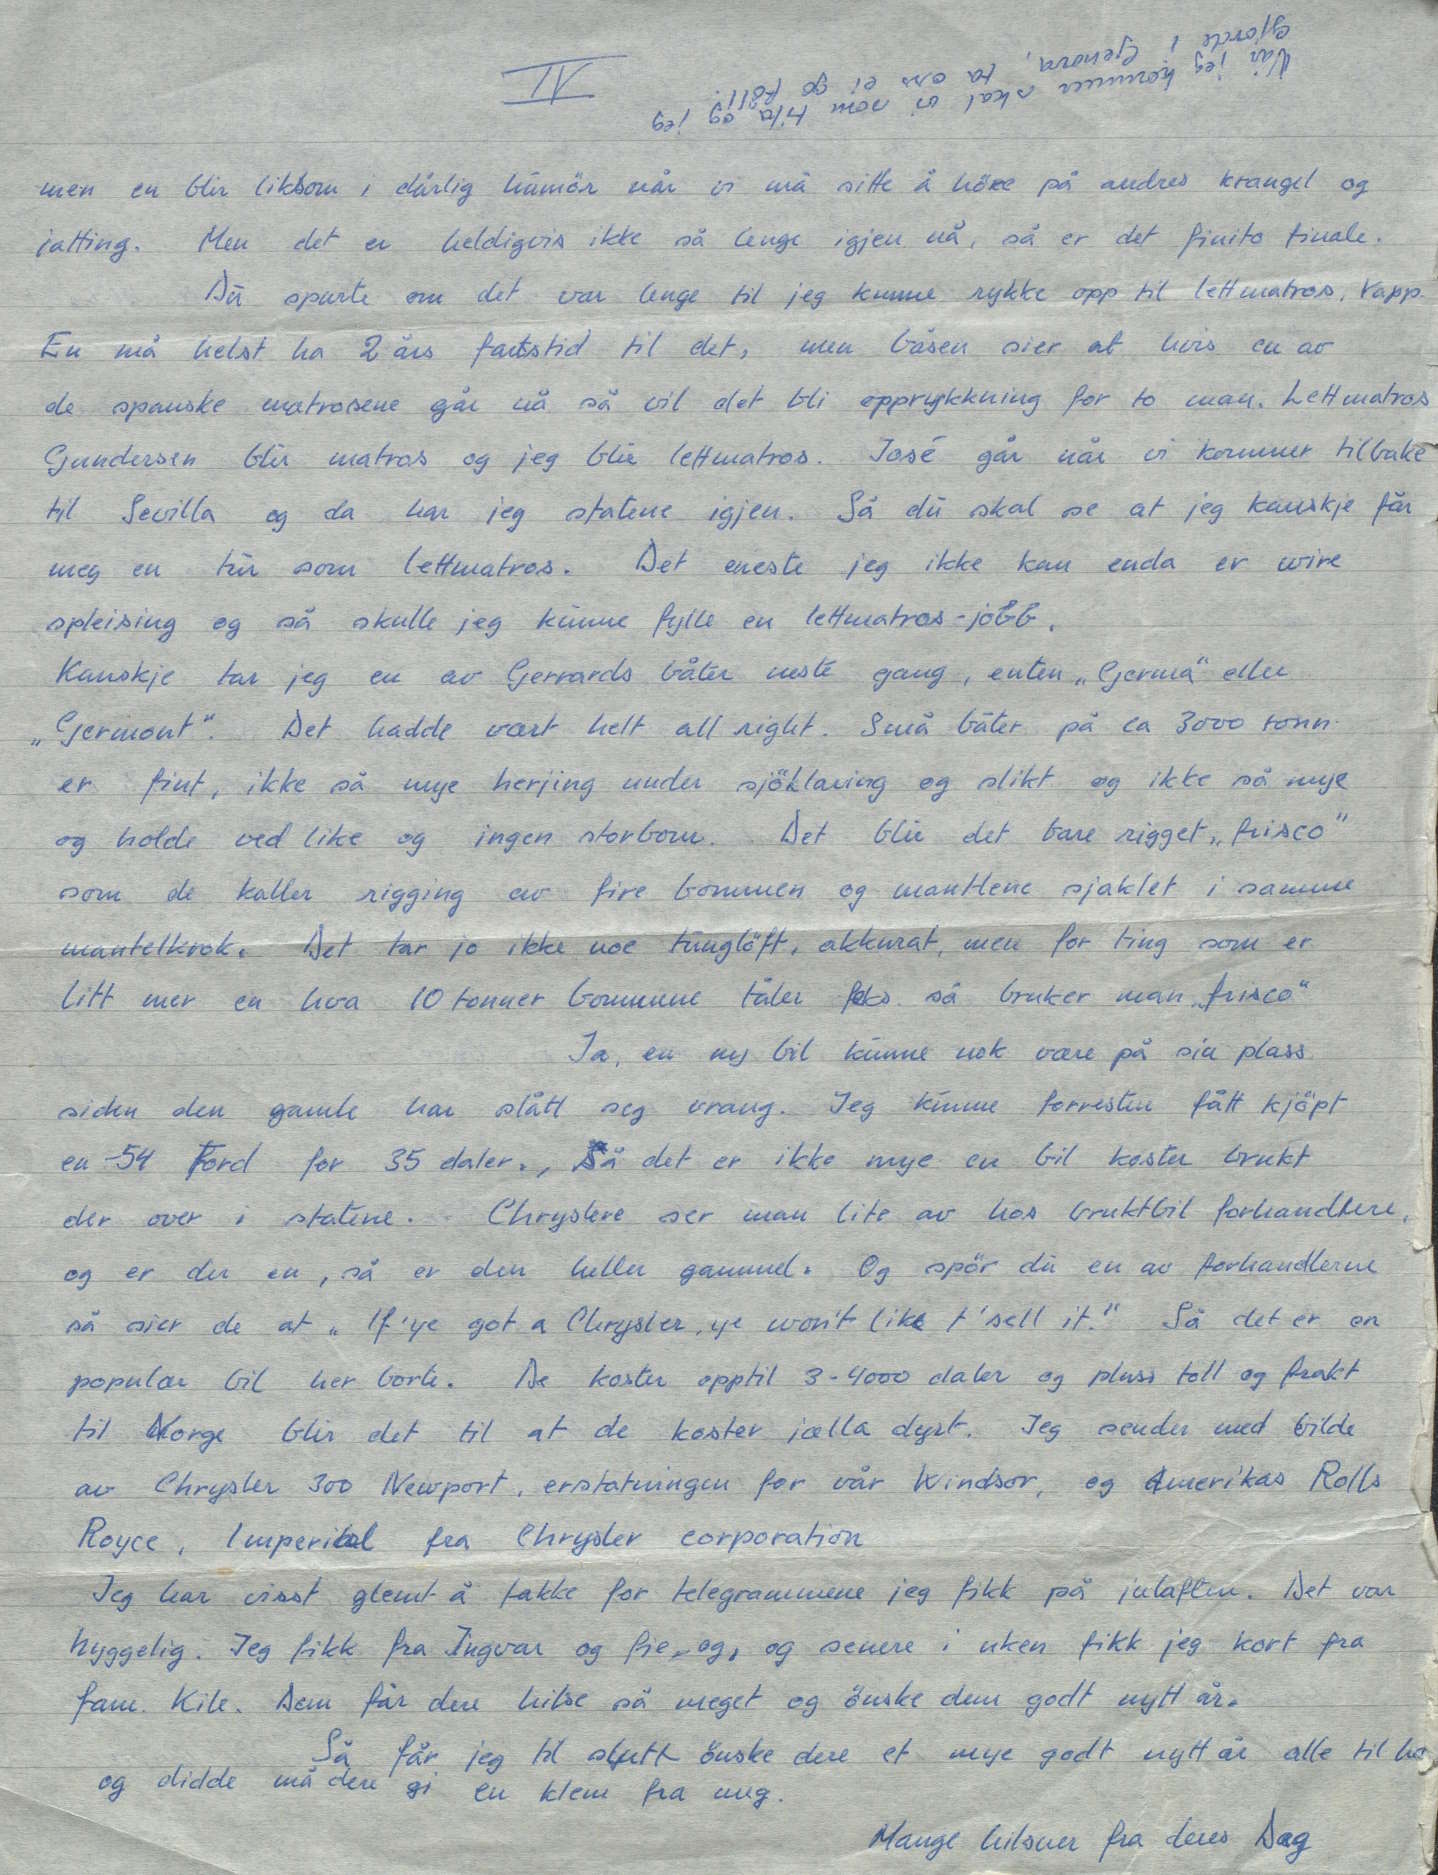 IV
Når jeg kommer skal vi som Tita og jeg
gjorde i Genova, ta oss ei go fyll!
men en blir liksom i dårlig humör når vi må sitte å höre på andres krangel og
jatting. Men det er heldigvis ikke så lenge igjen nå, så er det finito finale.
Du spurte om det var lenge til jeg kunne rykke opp til lettmatros, Kapp.
En må helst ha 2 års fartstid til det, men båsen sier at hvis en av
de spanske matrosene går nå så vil det bli opprykkning for to man. Lettmatros
Gundersen blir matros og jeg blir lettmatros. José går når vi kommer tilbake
til Sevilla og da har jeg statene igjen. Så du skal se at jeg kanskje får
meg en tur som lettmatros. Det eneste jeg ikke kan enda er wire
spleising og så skulle jeg kunne fylle en lettmatros-jobb.
Kanskje tar jeg en av Gerrards båter neste gang, enten „Germa" eller
„Germont". Det hadde vært helt all right. Små båter på ca 3000 tonn
er fint, ikke så mye herjing under sjöklaring og slikt og ikke så mye
og holde ved like og ingen storbom. Det blir det bare rigget „frisco"
som de kaller rigging av fire bommen og mantlene sjaklet i samme
mantelkrok. Det tar jo ikke noe tunglöft, akkurat, men for ting som er
litt mer en hva 10 tonner bommene tåler feks. så bruker man „frisco"
Ja, en ny bil kunne nok være på sin plass
siden den gamle har slått seg vrang. Jeg kunne forresten fått kjöpt
en -54 Ford for 35 daler., Så det er ikke mye en bil koster brukt
der over i statene. Chryslere ser man lite av hos bruktbil forhandlere,
og er der en, så er den heller gammel. Og spör du en av forhandlerne
så sier de at „If 'ye got a Chrysler, ye won't like t'sell it." Så det er en
populær bil her borte. De koster opptil 3-4000 daler og pluss toll og frakt
til Norge blir det til at de koster jælla dyrt. Jeg sender med bilde
av Chrysler 300 Newport, erstatningen for vår Windsor, og Amerikas Rolls
Royce, Imperial fra Chrysler corporation
Jeg har visst glemt å takke for telegrammene jeg fikk på julaften. Det var
hyggelig. Jeg fikk fra Ingvar og fie, og, og senere i uken fikk jeg kort fra
fam. Kile. Dem får dere hilse så meget og önske dem godt nytt år.
Så får jeg til slutt önske dere et mye godt nytt år alle til ho
og didde må dere gi en klem fra meg.
Mange hilsner fra deres Dag